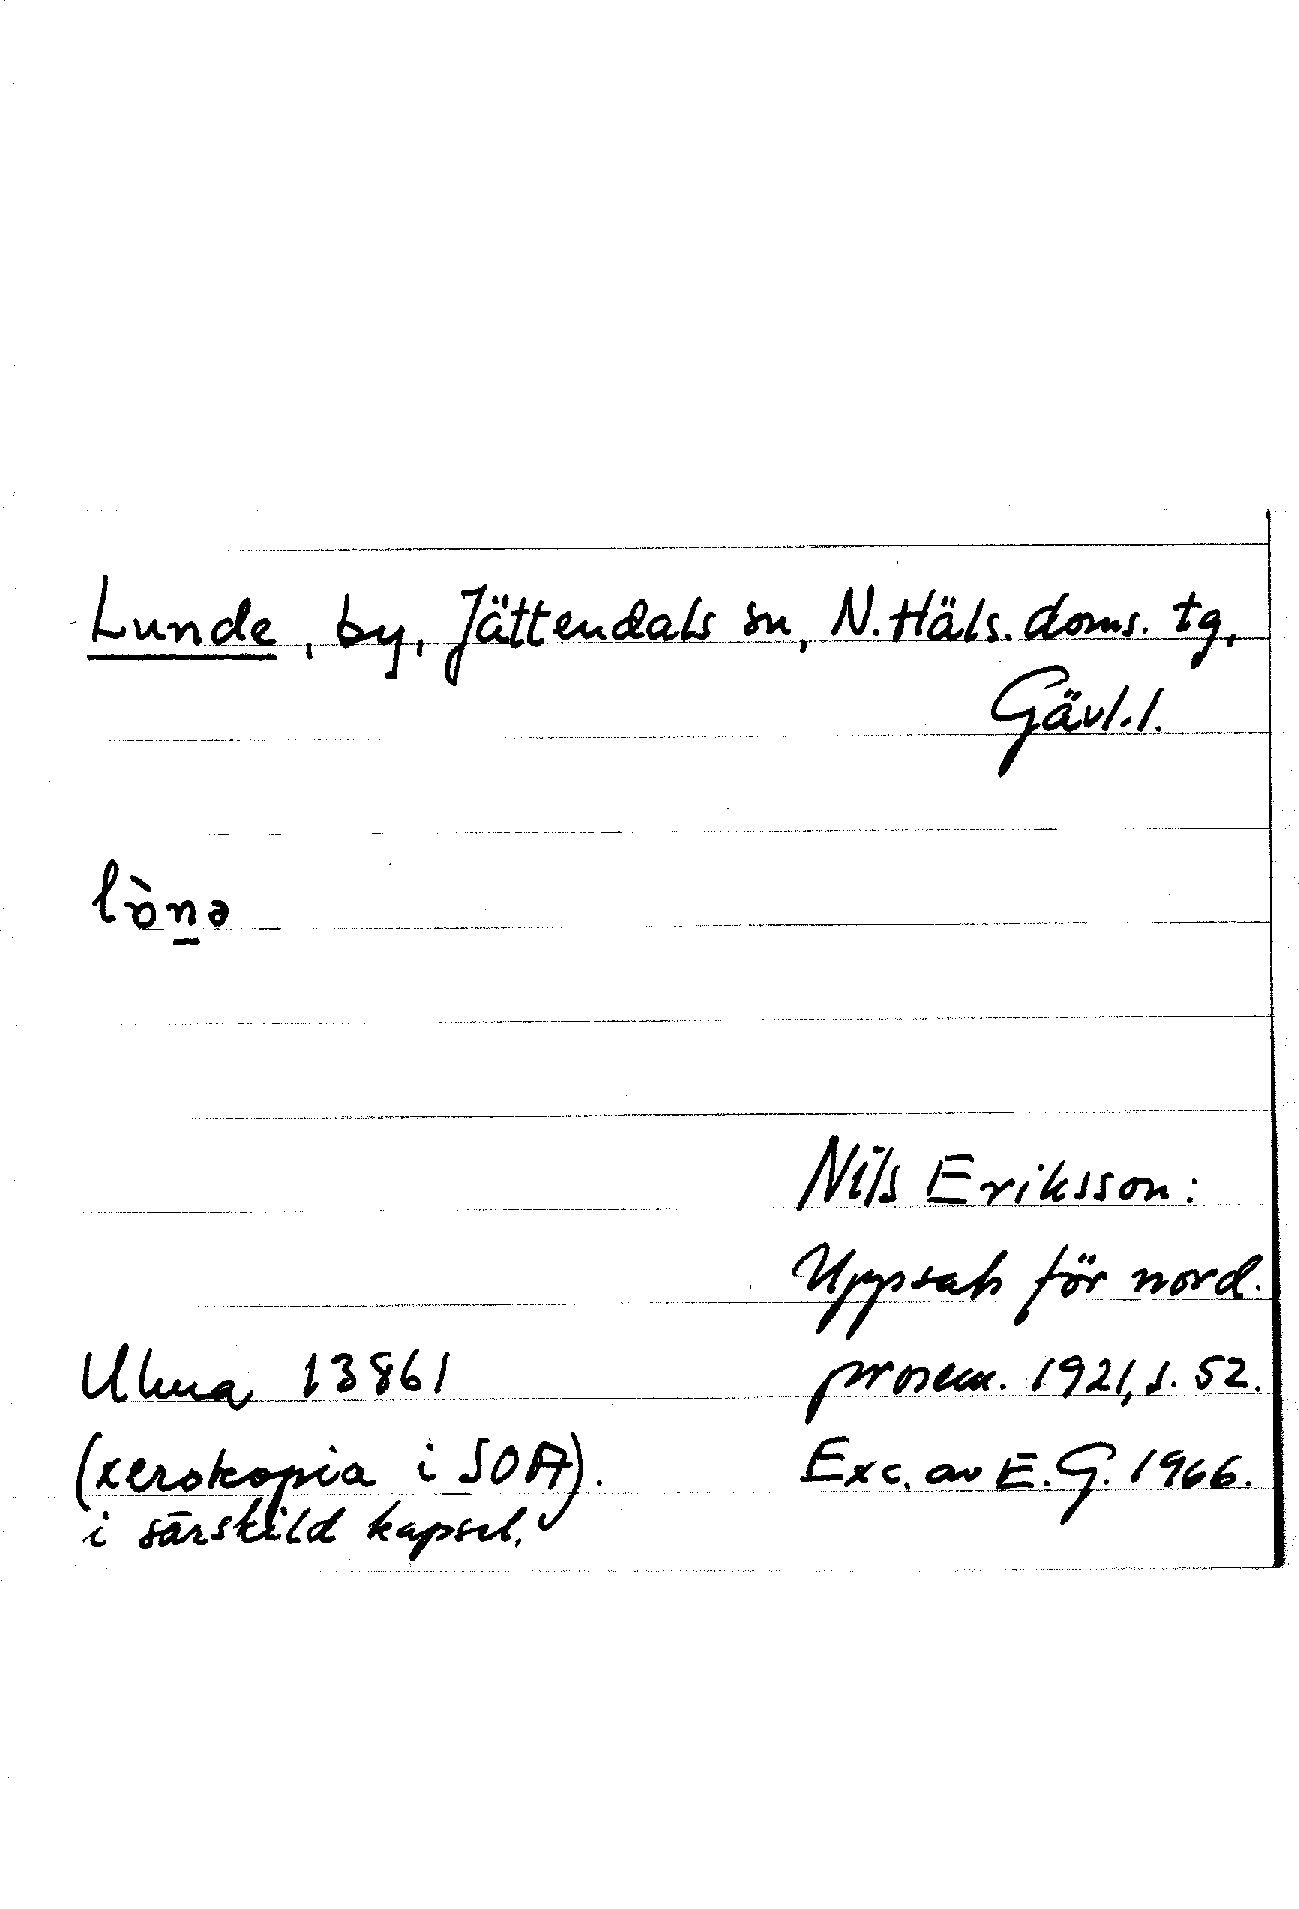 Lunde, by, Jättendals sn, N. Häls. doms. tg,
Gävl. l.
lòn̲ə
Nils Eriksson:
Uppsats för nord.
Uluma 13861
prosem. 1921, s. 52.
(xerokopia i SOA).
Exc. av E. G. 1966.
i särskild kapsel.